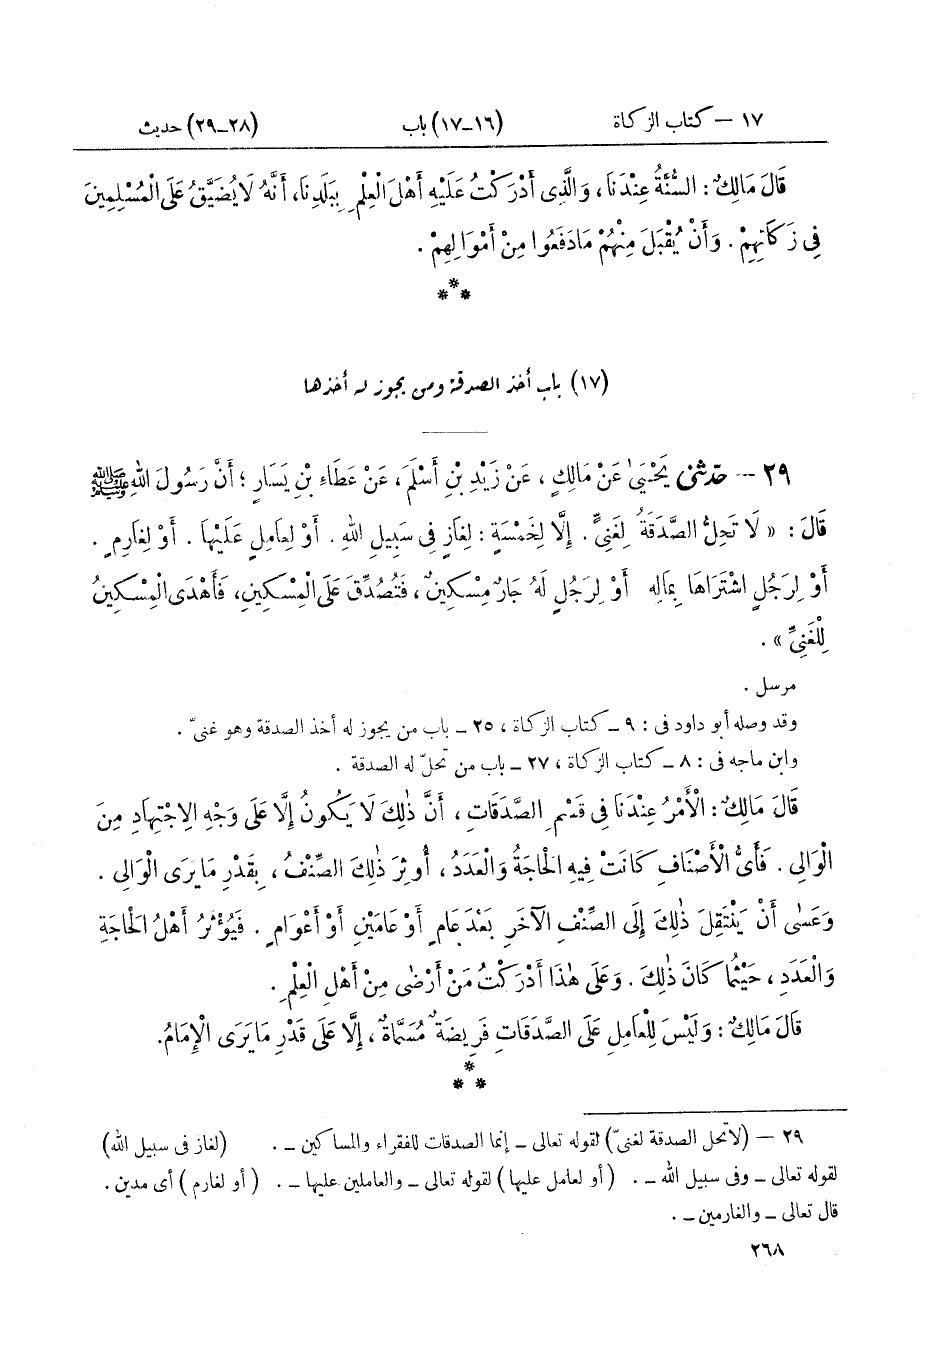 ١٧ – كتاب الزكاة (١٦–١٧) باب (٢٨–٢٩) حديث
قَالَ مَالِكٌ : السُّنَّةُ عِنْدَنَا ، وَالَّذِى أَدْرَكْتُ عَلَيْهِ أَهْلَ الْعِلْمِ بِبَلَدِنَا ، أَنَّهُ لَا يُضَيَّقُ عَلَى الْمُسْلِمِينَ
فِى زَكَاتِهِمْ . وَأَنْ يُقْبَلَ مِنْهُمْ مَادَفَعُوا مِنْ أَمْوَالِهِمْ .
***
(١٧) باب أخذ الصدقة ومن يجوز له أخذها
٢٩ – حَدَّثَنِى يَحْيَىٰ عَنْ مَالِكٍ ، عَنْ زَيْدِ بْنِ أَسْلَمَ ، عَنْ عَطَاءِ بْنِ يَسَارٍ ؛ أَنَّ رَسُولَ اللهِ ﷺ
قَالَ : « لَا تَحِلُّ الصَّدَقَةُ لِغَنِىٍّ . إِلَّا لِخَمْسَةٍ : لِغَازٍ فِى سَبِيلِ اللهِ . أَوْ لِعَامِلٍ عَلَيْهَا . أَوْ لِغَارِمٍ .
أَوْ لِرَجُلٍ اشْتَرَاهَا بِمَالِهِ أَوْ لِرَجُلٍ لَهُ جَارٌ مِسْكِينٌ ، فَتُصُدِّقَ عَلَى الْمِسْكِينِ ، فَأَهْدَى الْمِسْكِينُ
لِلْغَنِىِّ » .
مرسل .
وقد وصله أبو داود فى : ٩ – كتاب الزكاة ، ٢٥ – باب من يجوز له أخذ الصدقة وهو غنىّ .
وابن ماجه فى : ٨ – كتاب الزكاة ، ٢٧ – باب من تحلّ له الصدقة .
قَالَ مَالِكٌ : الْأَمْرُ عِنْدَنَا فِى قَسْمِ الصَّدَقَاتِ ، أَنَّ ذٰلِكَ لَا يَكُونُ إِلَّا عَلَى وَجْهِ الِاجْتِهَادِ مِنَ
الْوَالِى . فَأَىُّ الْأَصْنَافِ كَانَتْ فِيهِ الْحَاجَةُ وَالْعَدَدُ ، أُوثِرَ ذٰلِكَ الصِّنْفُ ، بِقَدْرِ مَا يَرَى الْوَالِى .
وَعَسَى أَنْ يَنْتَقِلَ ذٰلِكَ إِلَى الصِّنْفِ الْآخَرِ بَعْدَ عَامٍ أَوْ عَامَيْنِ أَوْ أَعْوَامٍ . فَيُؤْثَرُ أَهْلُ الْحَاجَةِ
وَالْعَدَدِ ، حَيْثُمَا كَانَ ذٰلِكَ . وَعَلَى هٰذَا أَدْرَكْتُ مَنْ أَرْضَى مِنْ أَهْلِ الْعِلْمِ .
قَالَ مَالِكٌ : وَلَيْسَ لِلْعَامِلِ عَلَى الصَّدَقَاتِ فَرِيضَةٌ مُسَمَّاةٌ ، إِلَّا عَلَى قَدْرِ مَا يَرَى الْإِمَامُ.
***
٢٩ – (لاتحل الصدقة لغنىّ) لقوله تعالى – إنما الصدقات للفقراء والمساكين – . (لغاز فى سبيل الله)
لقوله تعالى – وفى سبيل الله – . (أو لعامل عليها) لقوله تعالى – والعاملين عليها – . (أو لغارم) أى مدين .
قال تعالى – والغارمين – .
٢٦٨